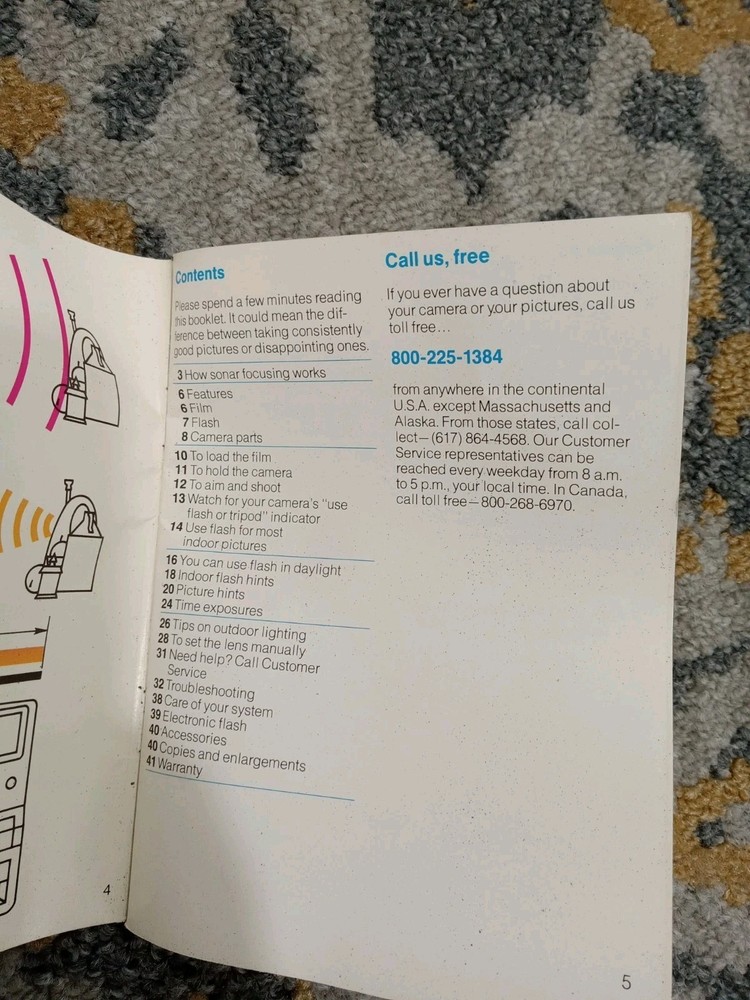 Contents
Please spend a few minutes reading
this booklet. It could mean the dif-
ference between taking consistently
good pictures or disappointing ones.
3 How sonar focusing works
6 Features
6 Film
7 Flash
8 Camera parts
10 To load the film
11 To hold the camera
12 To aim and shoot
13 Watch for your camera's "use
flash or tripod" indicator
14 Use flash for most
indoor pictures
16 You can use flash in daylight
18 Indoor flash hints
20 Picture hints
24 Time exposures
26 Tips on outdoor lighting
28 To set the lens manually
31 Need help? Call Customer
Service
32 Troubleshooting
38 Care of your system
39 Electronic flash
40 Accessories
40 Copies and enlargements
41 Warranty
4
Call us, free
If you ever have a question about
your camera or your pictures, call us
toll free...
800-225-1384
from anywhere in the continental
U.S.A. except Massachusetts and
Alaska. From those states, call col-
lect—(617) 864-4568. Our Customer
Service representatives can be
reached every weekday from 8 a.m.
to 5 p.m., your local time. In Canada,
call toll free—800-268-6970.
5